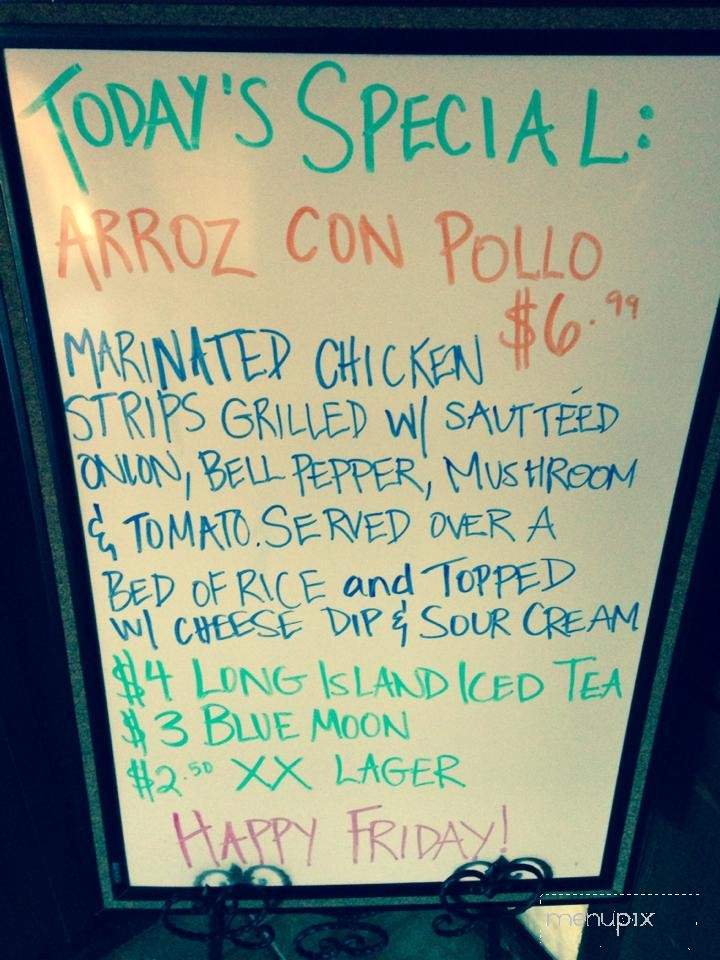 TODAY'S SPECIAL:
ARROZ CON POLLO
$6.99
MARINATED CHICKEN
STRIPS GRILLED W/ SAUTTÉED
ONION, BELL PEPPER, MUSHROOM
& TOMATO. SERVED OVER A
BED OF RICE and TOPPED
W/ CHEESE DIP & SOUR CREAM
$4 LONG ISLAND ICED TEA
$3 BLUE MOON
$2.50 XX LAGER
HAPPY FRIDAY!
menupix